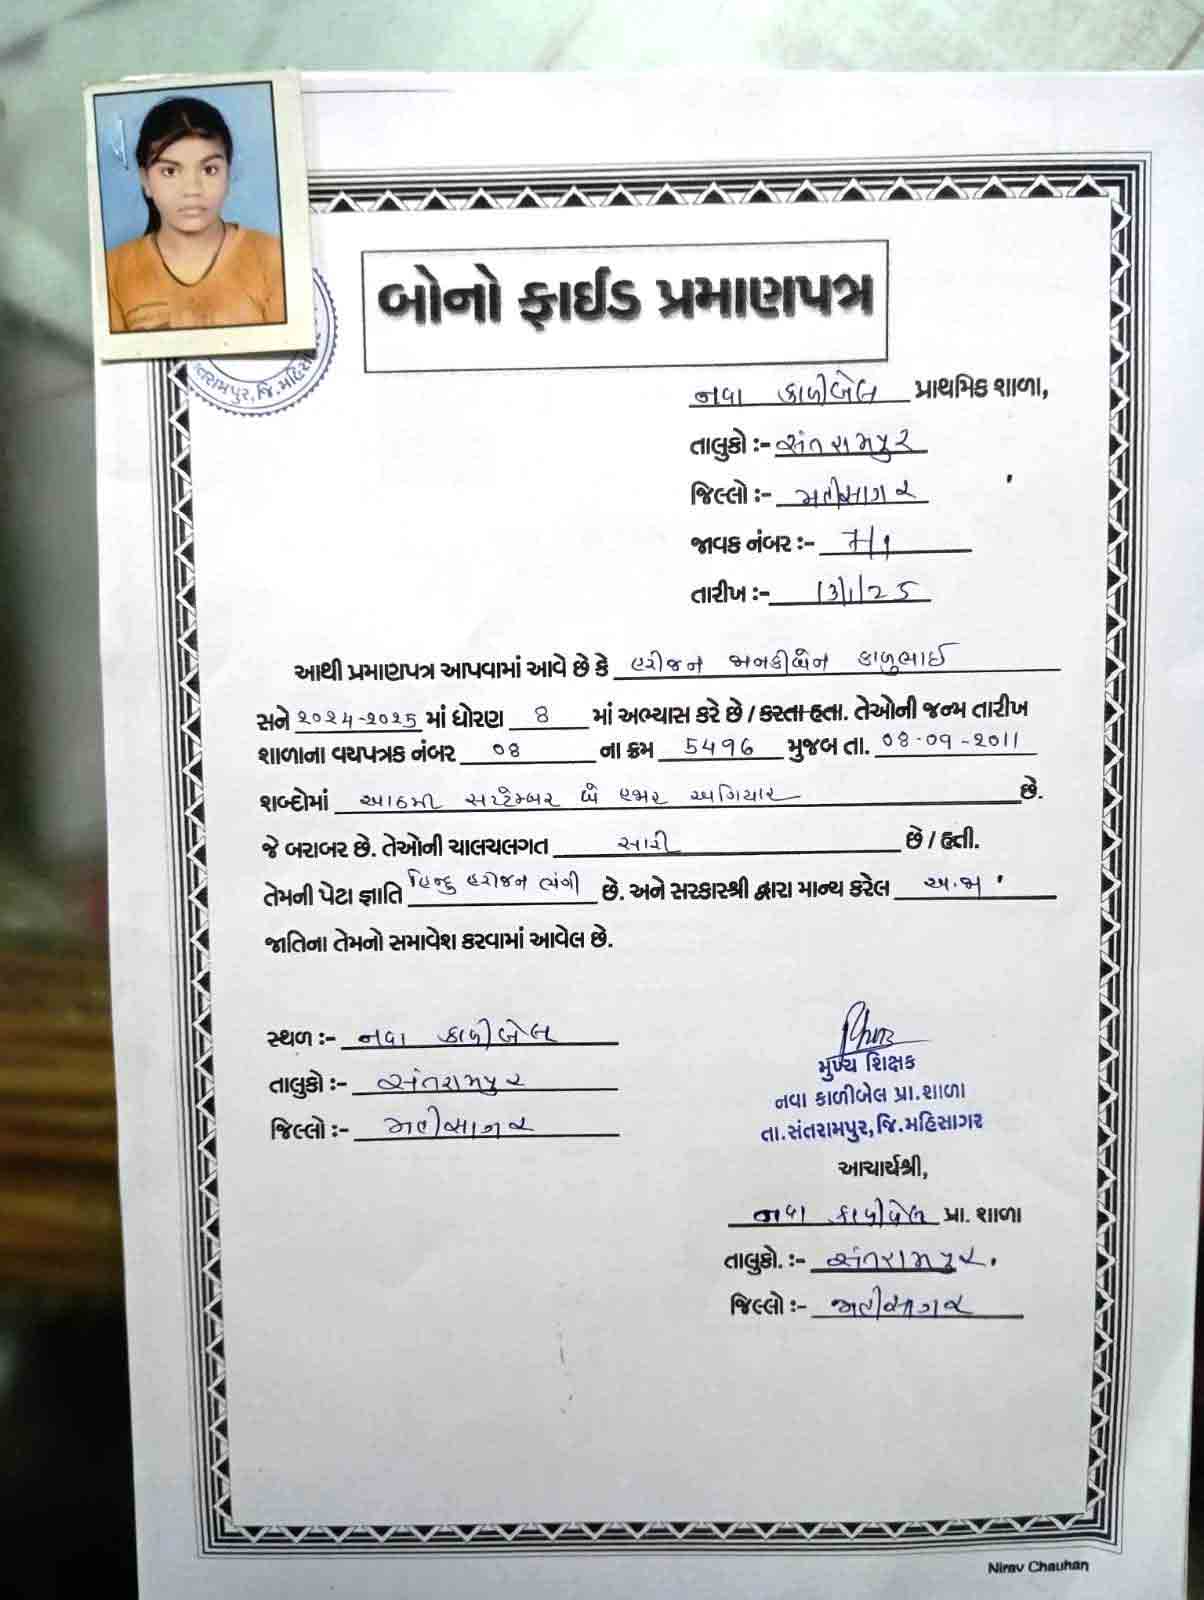 બોનો ફાઈડ પ્રમાણપત્ર
સંતરામપુર, જિ. મહિસા
નવા કાળીબેલ પ્રાથમિક શાળા,
તાલુકો :- સંતરામપુર
જિલ્લો :- મહીસાગર
જાવક નંબર :- 7/1
તારીખ :- 13/1/25
આથી પ્રમાણપત્ર આપવામાં આવે છે કે હરીજન જાનકીબેન કાળુભાઈ
સને ૨૦૨૪-૨૦૨૫ માં ધોરણ 8 માં અભ્યાસ કરે છે / કરતા હતા. તેઓની જન્મ તારીખ
શાળાના વયપત્રક નંબર ૦૪ ના ક્રમ 5496 મુજબ તા. ૦8-૦9-૨૦11
શબ્દોમાં આઠમી સપ્ટેમ્બર બે હજાર અગિયાર છે.
જે બરાબર છે. તેઓની ચાલચલગત સારી છે / હતી.
તેમની પેટા જ્ઞાતિ હિન્દુ હરીજન ભંગી છે. અને સરકારશ્રી દ્વારા માન્ય કરેલ અ.જા
જાતિના તેમનો સમાવેશ કરવામાં આવેલ છે.
સ્થળ :- નવા કાળીબેલ
તાલુકો :- સંતરામપુર
જિલ્લો :- મહીસાગર
મુખ્ય શિક્ષક
નવા કાળીબેલ પ્રા.શાળા
તા.સંતરામપુર,જિ.મહિસાગર
આચાર્યશ્રી,
નવા કાળીબેલ પ્રા. શાળા
તાલુકો. :- સંતરામપુર.
જિલ્લો :- મહીસાગર
Nirav Chauhan